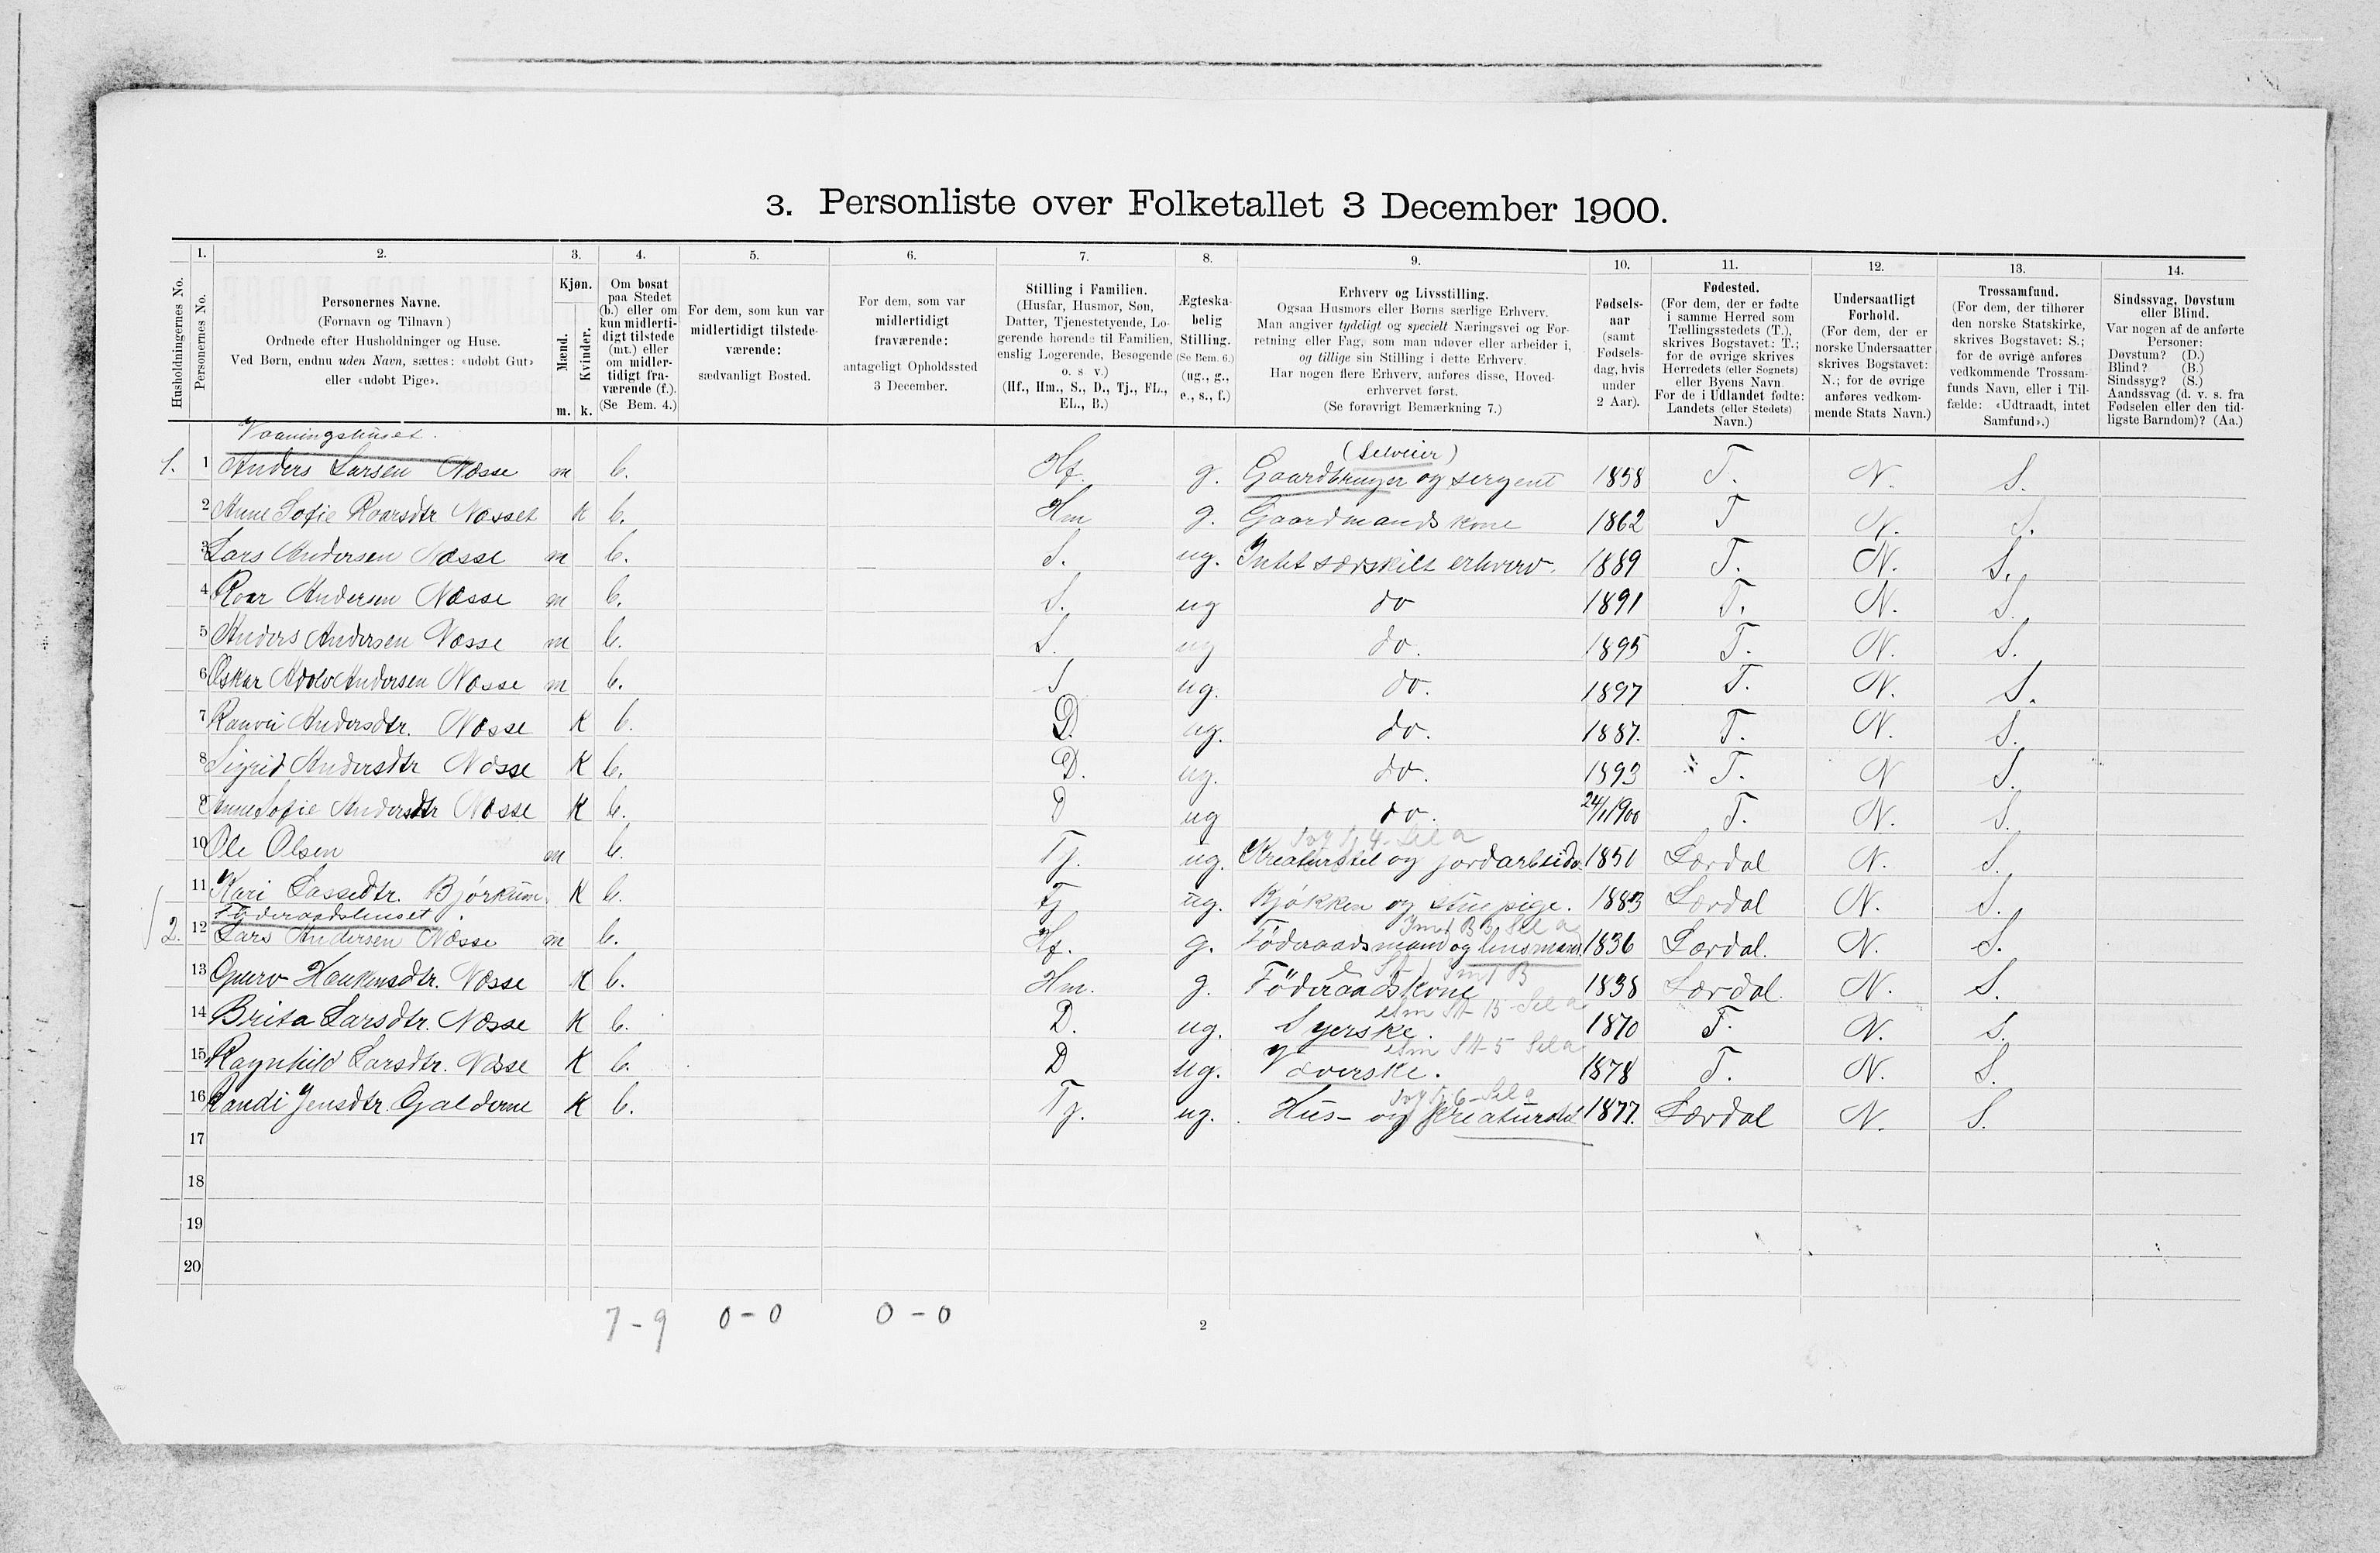 3. Personliste over Folketallet 3 December 1900.
Husholdningernes No.
1.
Personernes No.
2.
Personernes Navne.
(Fornavn og Tilnavn)
Ordnede efter Husholdninger og Huse.
Ved Børn, endnu uden Navn, sættes: «udøbt Gut»
eller «udøbt Pige».
3.
Kjøn.
Mænd.
Kvinder.
m. k.
4.
Om bosat
paa Stedet
(b.) eller om
kun midlerti-
digt tilstede
(mt.) eller
om midler-
tidigt fra-
værende (f.).
(Se Bem. 4.)
5.
For dem, som kun var
midlertidigt tilstede-
værende:
sædvanligt Bosted.
6.
For dem, som var
midlertidigt
fraværende:
antageligt Opholdssted
3 December.
7.
Stilling i Familien.
(Husfar, Husmor, Søn,
Datter, Tjenestetyende, Lo-
gerende hørende til Familien,
enslig Logerende, Besøgende
o. s v.)
(Hf., Hm., S., D., Tj., FL.,
EL., B.)
8.
Ægteska-
belig
Stilling.
(Se Bem. 6.)
(ug., g.,
e., s., f.)
9.
Erhverv og Livsstilling.
Ogsaa Husmors eller Børns særlige Erhverv.
Man angiver tydeligt og specielt Næringsvei og For-
retning eller Fag, som man udøver eller arbeider i,
og tillige sin Stilling i dette Erhverv.
Har nogen flere Erhverv, anføres disse, Hoved-
erhvervet først.
(Se forøvrigt Bemærkning 7.)
10.
Fødsels-
aar
(samt
Fødsels-
dag, hvis
under
2 Aar).
11.
Fødested.
(For dem, der er fødte
i samme Herred som
Tællingsstedets (T.),
skrives Bogstavet: T.;
for de øvrige skrives
Herredets (eller Sognets)
eller Byens Navn.
For de i Udlandet fødte:
Landets (eller Stedets)
Navn.)
12.
Undersaatligt
Forhold.
(For dem, der er
norske Undersaatter
skrives Bogstavet:
N.; for de øvrige
anføres vedkom-
mende Stats Navn.)
13.
Trossamfund.
(For dem, der tilhører
den norske Statskirke,
skrives Bogstavet: S.;
for de øvrige anføres
vedkommende Trossam-
funds Navn, eller i Til-
fælde: «Udtraadt, intet
Samfund».)
14.
Sindssvag, Døvstum
eller Blind.
Var nogen af de anførte
Personer:
Døvstum? (D.)
Blind? (B.)
Sindssyg? (S.)
Aandssvag (d. v. s. fra
Fødselen eller den tid-
ligste Barndom)? (Aa.)
Vaaningshuset.
(Selveier)
1. 1 Anders Larsen Næsse m b. Hf. g. Gaardbruger og sergent 1858 T. N. S.
2 Anne Sofie Roarsdtr Næsset K b. Hm g. Gaardmandskone 1862 T N. S.
3 Lars Andersen Næsse m b. S. ug. Intet særskilt erhverv. 1889 T. N. S.
4 Roar Andersen Næsse m b. S. ug do 1891 T. N. S.
5 Anders Andersen Næsse m b. S. ug do. 1895 T. N. S.
6 Oskar Adolv Andersen Næsse m b. S ug. do. 1897 T. N. S.
7 Ranvei Andersdtr. Næsse K b. D. ug. do. 1887. T. N. S.
8 Sigrid Andersdtr Næsse K b. D. ug. do. 1893 T. N S.
9 Anne Sofie Andersdtr Næsse K b. D ug do. 24/1 1900 T. N. S.
10 Ole Olsen m b. Tj. ug. Kreaturstel og jordarbeide 1851 Lærdal N. S.
11 Kari Lassedtr. Bjørkum K b. Tj ug. Kjøkken og stuepige. 1883 Lærdal N. S.
Føderaadshuset.
2. 12 Lars Andersen Næsse m b. Hf. g. Föderaadsmand og lensmand 1836 Lærdal. N. S.
13 Gurv Haakensdtr. Næsse K b. Hm. g. Föderaadskone 1838 Lærdal. N. S.
14 Brita Larsdtr. Næsse K b. D. ug. Syerske. 1870 T. N. S.
15 Ragnhild Larsdtr. Næsse K b. D ug. Væverske. 1878 T. N. S.
16 Randi Jensdtr. Galderne K b. Tj. ug. Hus- og Kreaturstel 1877. Lærdal N. S.
17
18
19
20
7-9 0-0 0-0
2